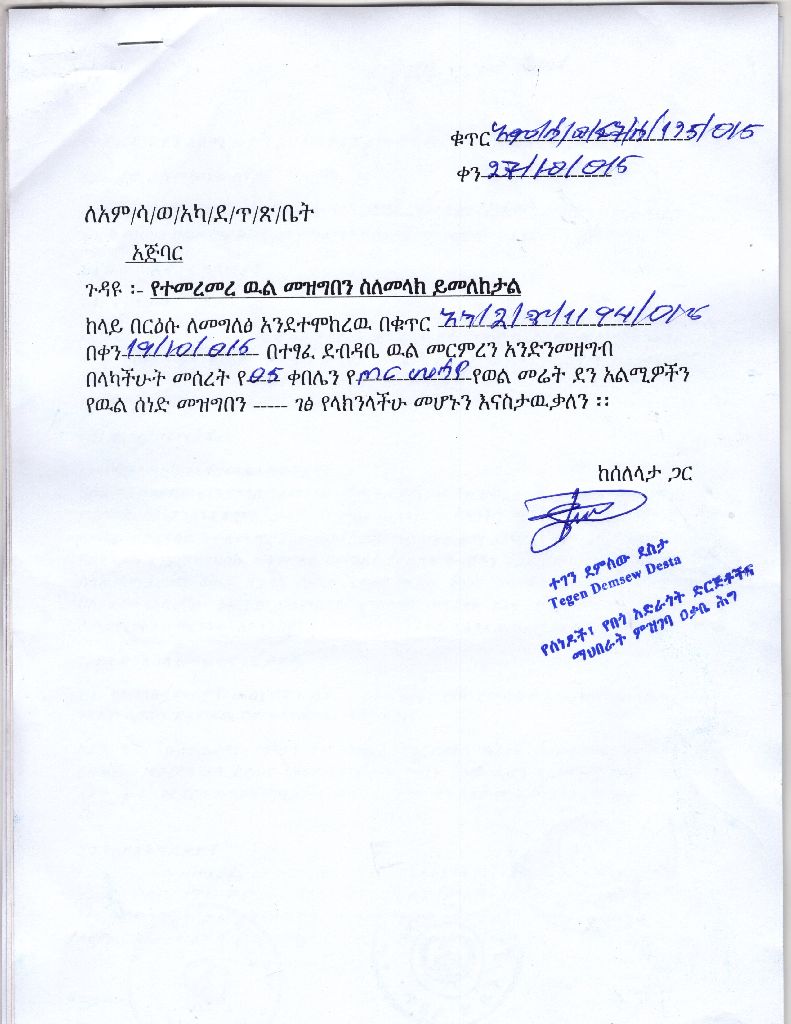 ቁጥር አምሳ/ወ/ፍ/ጽ/195/015
ቀን 27/10/015
ለአም/ሳ/ወ/አካ/ደ/ጥ/ጽ/ቤት
አጅባር
ጉዳዩ ፡- የተመረመረ ዉል መዝግበን ስለመላክ ይመለከታል
ከላይ በርዕሱ ለመግለፅ እንደተሞከረዉ በቁጥር 1194/015
በቀን 19/10/015 በተፃፈ ደብዳቤ ዉል መርምረን እንድንመዘግብ
በላካችሁት መሰረት የ05 ቀበሌን የ የወል መሬት ደን አልሚዎችን
የዉል ሰነድ መዝግበን ----- ገፅ የላክንላችሁ መሆኑን እናስታዉቃለን ፡፡
ከሰለላታ ጋር
ተገን ደምሰው ደስታ
Tegen Demsew Desta
የሰነዶች፣ የበጎ አድራጎት ድርጅቶችና
ማህበራት ምዝገባ ዐቃቤ ሕግ